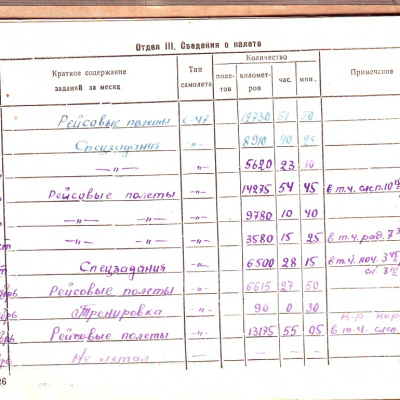 Отдел III. Сведения о налете
Краткое содержание заданий за месяц Тип самолета Количество Примечание
поле-тов километ-ров час. мин.
Рейсовые полеты С-47 12730 51 50
Спецзадания -"- 8910 40
-"- -"- 5620 23 10
Рейсовые полеты -"- 14275 54 45 в т.ч. слеп.
-"- -"- 9780 10 40
-"- -"- 3580 15 25 в т.ч. рад.
Спецзадания -"- 6500 28 15 в т.ч. ноч. 3 45
Рейсовые полеты -"- 6615 27 50
Тренировка -"- 90 0 30
Рейсовые полеты -"- 13175 55 05 в т.ч. слеп
Не летал -"-
26